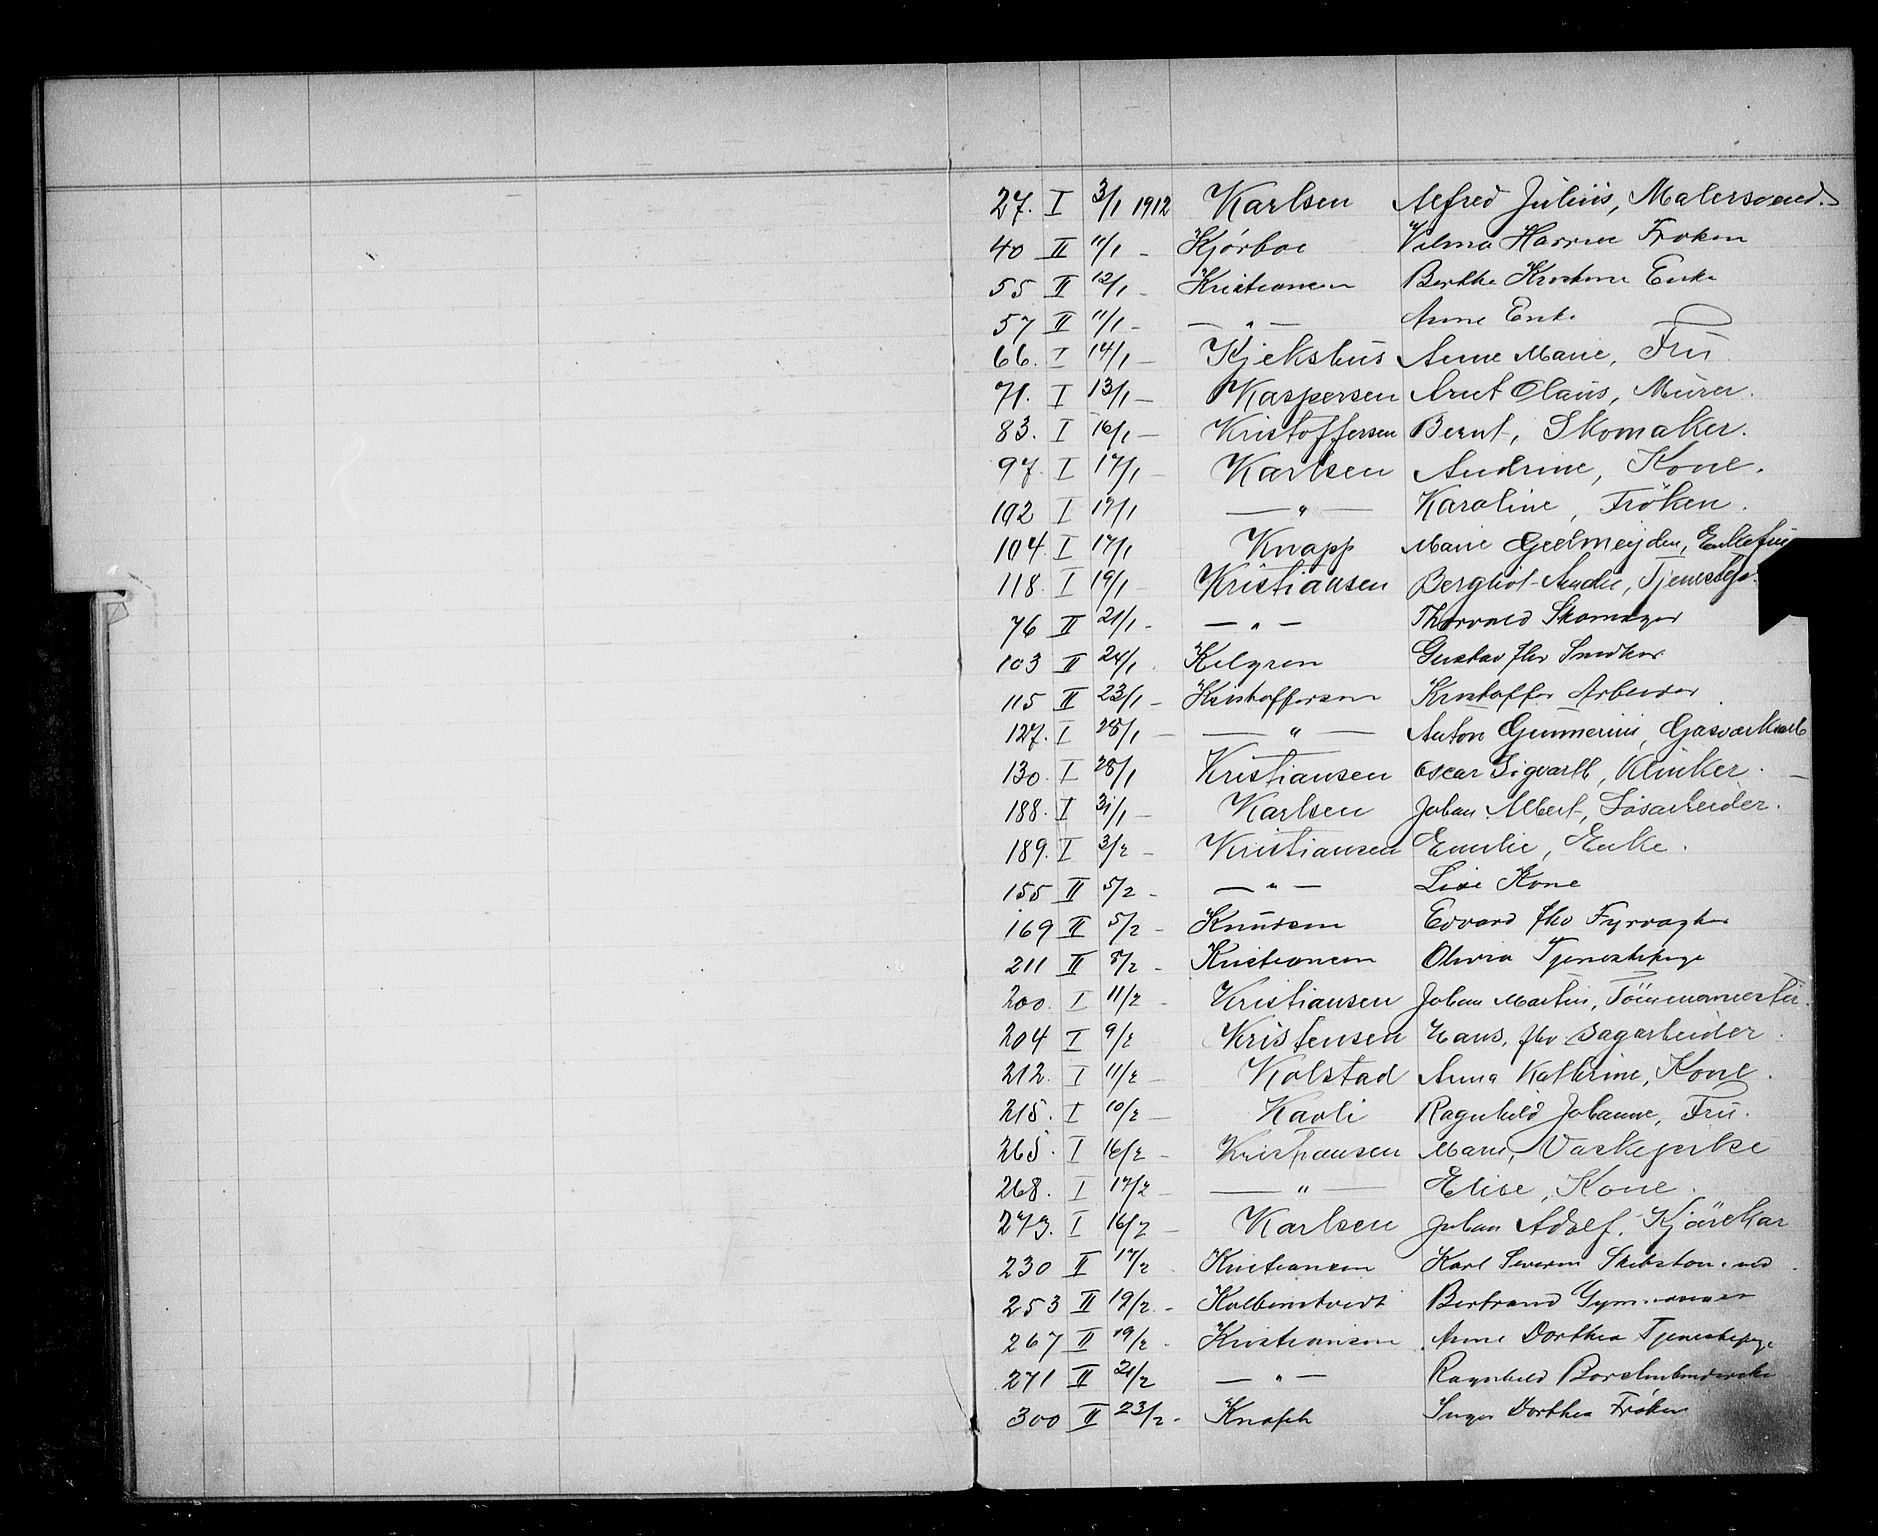 27. I 3/1 1912 Karlsen Alfred Julius, Malersvend.
40 II 11/1 - Kjørboe Vilma Fröken
55 II 12/1 - Kristiansen Berthe Kristine Enke
57 II 11/1 - — " — Anne Enke
66. I 14/1 — Kjekshus Anne Marie, Fru
71. I 13/1 — Kaspersen Arnt Olaus, Murer.
83. I 16/1 — Kristoffersen Bernt, Skomaker.
97. I 17/1 — Karlsen Andrine, Kone.
102 I 17/1 — " — Karoline, Fröken.
104. I 17/1 Knapp Marie Geelmeijden, Enkefru
118. I 19/1 - Kristiansen Bergliot Amalie, Tjenestep.
76 II 21/1 - — " — Thorvald Skomager
103 II 24/1 . Kelgren Gustav fhv Snedker
115 II 23/1 - Kristoffersen Kristoffer Arbeider
127. I 28/1 — — " — Anton Gunnerius, Gasværksarb
130. I 28/1 Kristiansen Oscar Sigvartb, Klinker. —
188. I 31/1 — Karlsen Johan Albert, Løsarbeider.
189. I 3/2 - Kristiansen Emilie, Enke.
155 II 5/2 - — " — Lise Kone
169 II 5/2 - Knudsen Edvard fhv Fyrvogter
211 II 8/2 - Kristiansen Olivia Tjenestepige
200. I 11/2 - Kristiansen Johan Martin, Tömmermester.
204 I 9/2 Kristensen Hans, fhv. Sagarbeider.
212. I 11/2 — Kolstad Anna Kathrine, Kone.
215. I 10/2 — Kavli Ragnhild Johanne, Fru.
265. I 16/2 - Kristiansen Marie, Vaskepike
268. I 17/2 — " — Elise, Kone.
273. I 16/2 — Karlsen Johan Adolf, Kjörekar
230 II 17/2 . Kristiansen Karl Severin
253 II 19/2 - Kolbenstvedt Bertrand
267 II 19/2 . Kristiansen Anne Dorthea Tjenestepige
271 II 21/2 — " — Ragnhild
300 II 23/2 - Knoph Inger Dorthea Fröken